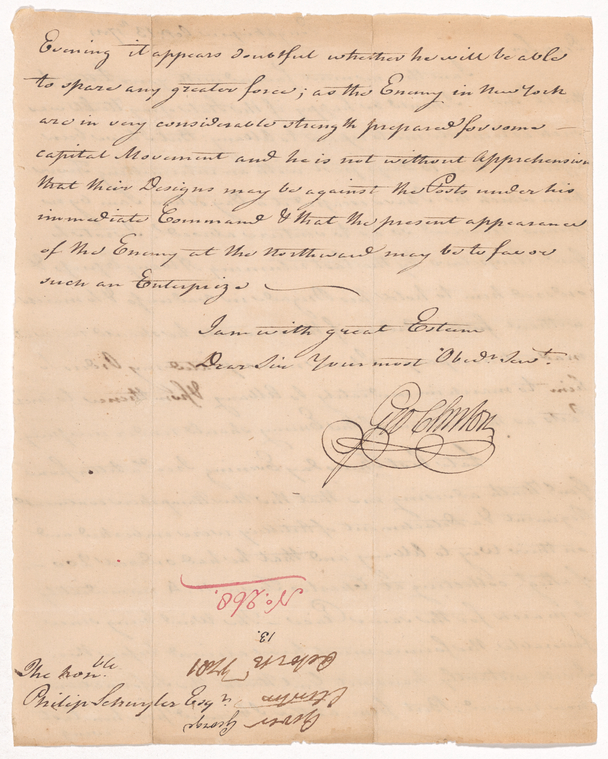 Evening it appears doubtful whether he will be able
to spare any greater force; as the Enemy in New York
are in very considerable strength prepared for some —
capital Movement and he is not without Apprehension
that their Designs may be against the Posts under his
immediate Command & that the present appearance
of the Enemy at the Northward may be to favor
such an Enterprize
I am with great Esteem
Dear Sir Your most Obedt Servt.
Geo Clinton
No. 268.
13.
The Honble.
Philip Schuyler Esqr.
George
Clinton
1781